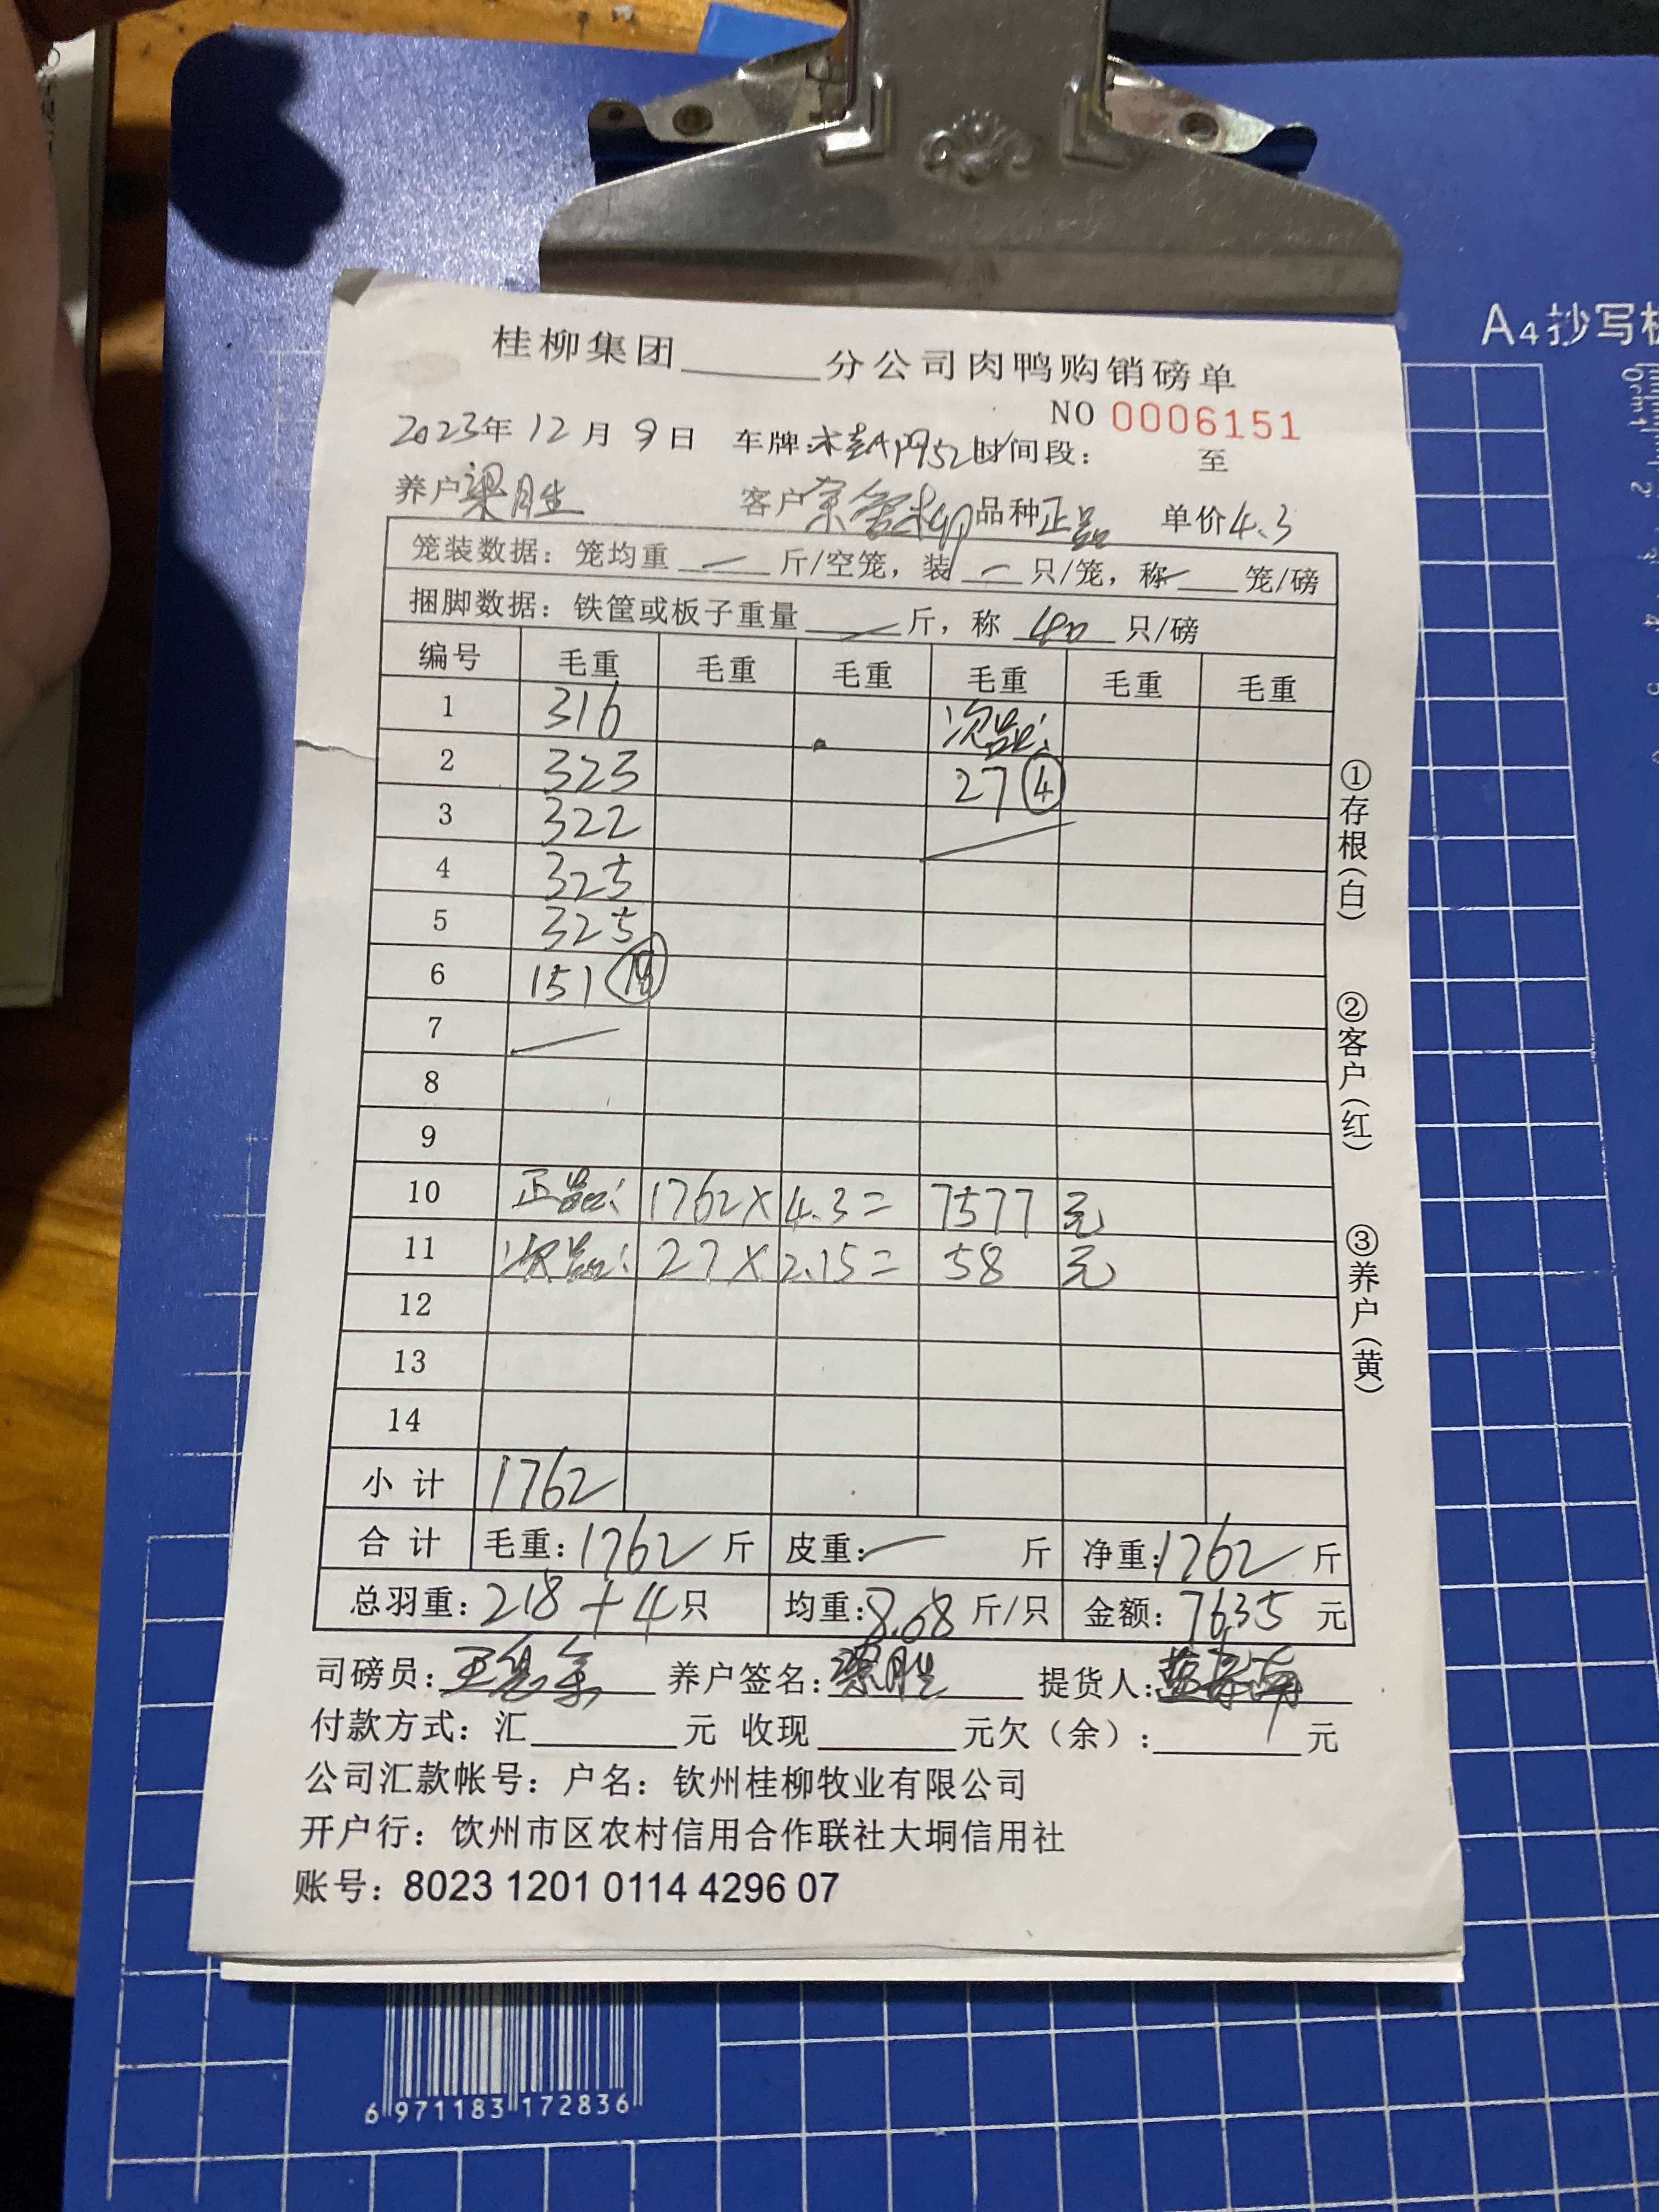 A4抄写板
桂柳集团______分公司肉鸭购销磅单
NO 0006151
2023年12月9日 车牌: 时间段: 至
养户梁胜 客户 品种正品 单价4.3
笼装数据：笼均重 — 斤/空笼，装 — 只/笼，称 — 笼/磅
捆脚数据：铁筐或板子重量 — 斤，称 40 只/磅
编号 毛重 毛重 毛重 毛重 毛重 毛重
1 316 次品:
2 323 27 ④
3 322
4 325
5 325
6 151 18
7
8
9
10 正品: 1762× 4.3= 7577 元
11 次品: 27× 2.15= 58 元
12
13
14
小计 1762
合计 毛重:1762斤 皮重:— 斤 净重:1762斤
总羽重:218+4只 均重:8.08斤/只 金额:7635元
司磅员: 养户签名:梁胜 提货人:
付款方式：汇______元 收现______元欠（余）:______元
公司汇款帐号：户名：钦州桂柳牧业有限公司
开户行：饮州市区农村信用合作联社大垌信用社
账号：8023 1201 0114 4296 07
①存根（白）
②客户（红）
③养户（黄）
6 971183 172836